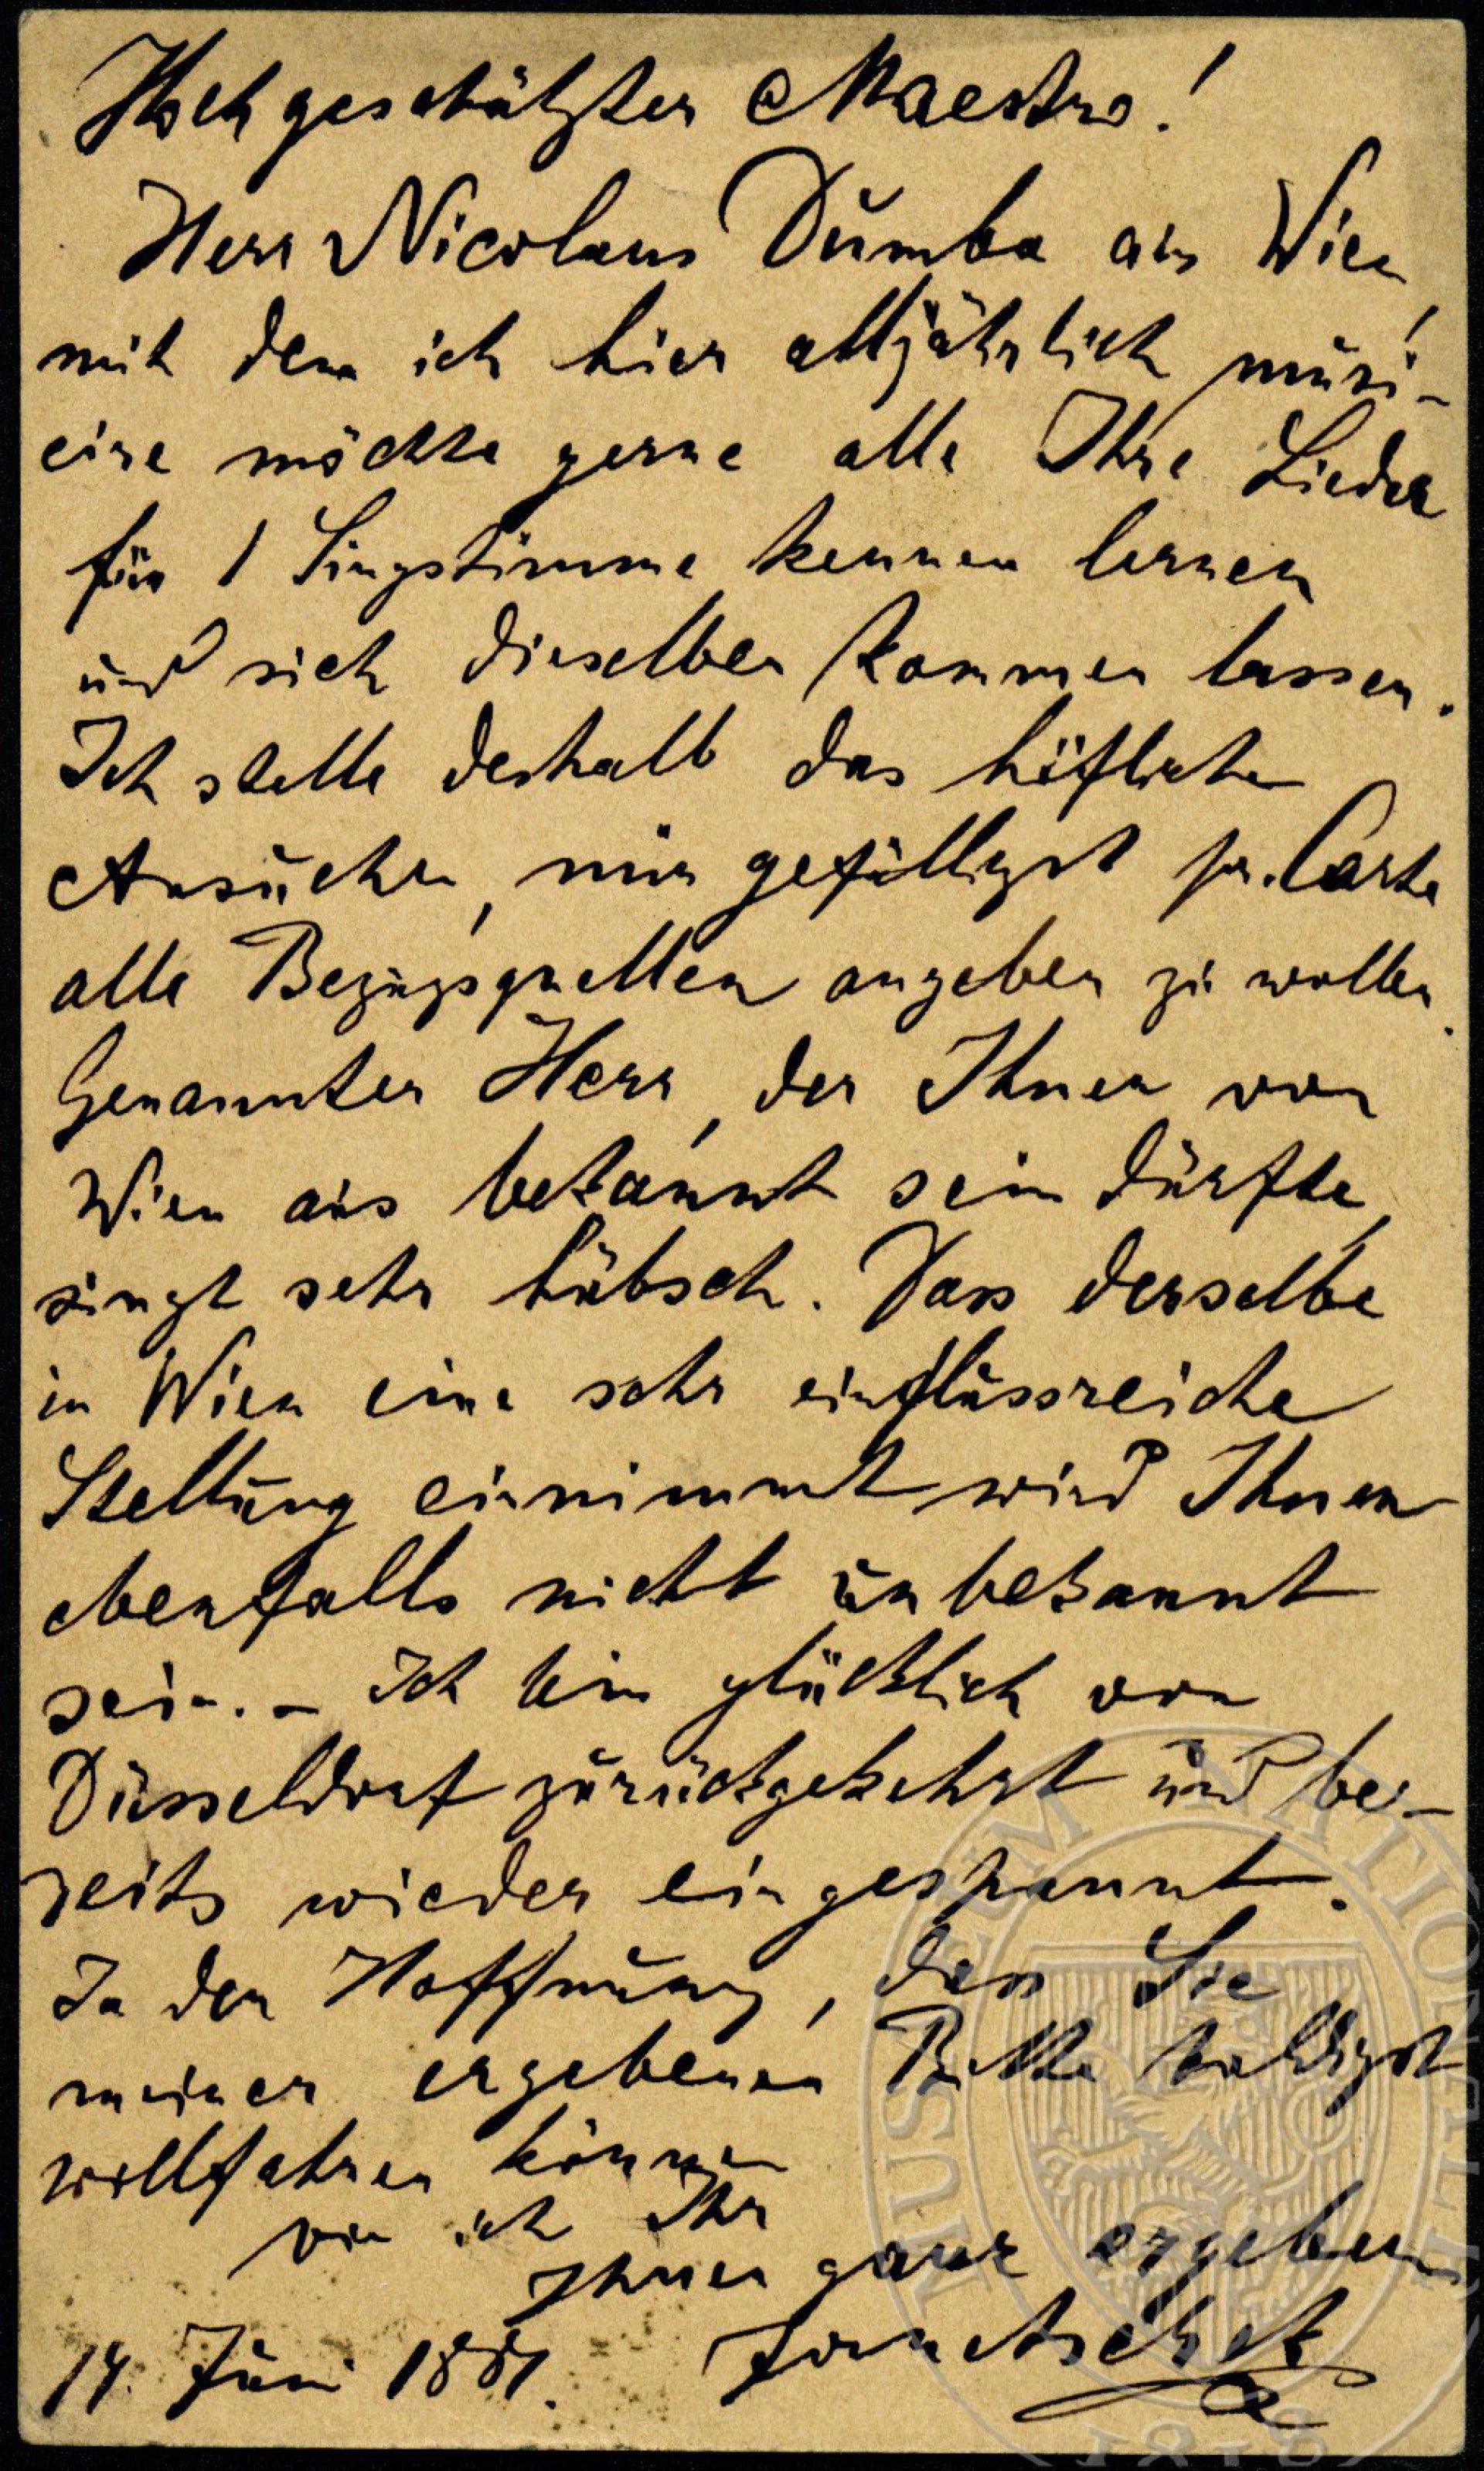 Hochgeschätzter Maestro!
Herr Nicolaus Dumba aus Wien,
mit dem ich hier alljährlich musi-
cire möchte gerne alle Ihre Lieder
für 1 Singstimme kennen lernen
und sich dieselben kommen lassen.
Ich stelle deshalb das höfliche
Ansuchen, mir gefälligst pr. Carte
alle Bezugsquellen angeben zu wollen.
Genannter Herr, der Ihnen von
Wien aus bekannt sein dürfte,
singt sehr hübsch. Dass derselbe
in Wien eine sehr einflussreiche
Stellung einnimmt wird Ihnen
ebenfalls nicht unbekannt
sein. – Ich bin glücklich von
Düsseldorf zurückgekehrt und be-
reits wieder eingespannt.
In der Hoffnung, dass Sie
meiner ergebenen Bitte baldigst
willfahren können
bin ich Ihr
Ihnen ganz ergebener
14. Juni 1881.
MUSEUM NATIONALE
1818